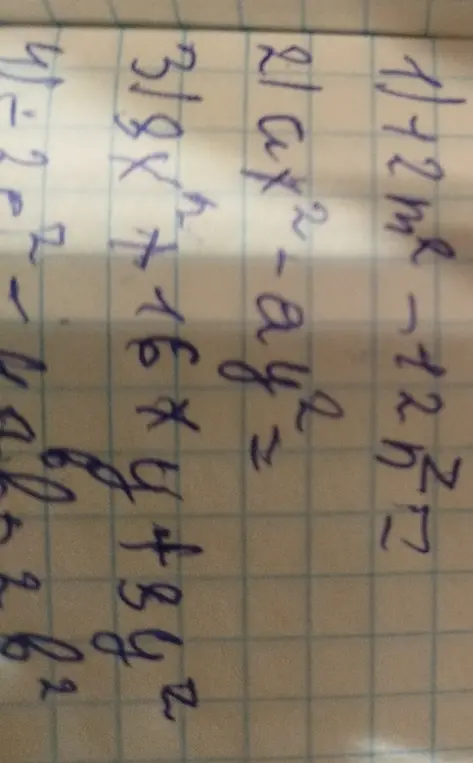 1) 12m² - 12n² =
2) ax² - ay² =
3) 8x² + 16xy + 8y²
4) -2a² - 4ab - 2b²